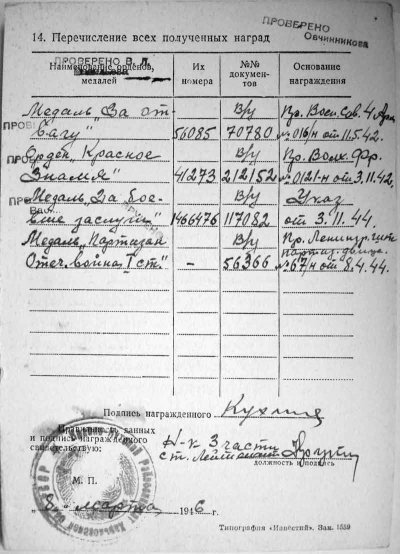 ПРОВЕРЕНО
Овчинникова
14. Перечисление всех полученных наград
ПРОВЕРЕНО В. Л.
Наименование орденов, медалей
Их номера
№№ документов
Основание награждения
Медаль „За от-
вагу"
56085
В/у
70780
Пр. Воен. Сов. 4 Арм
№ 016/н от 11.5.42.
Орден „Красное
Знамя"
41273
В/у
212152
Пр. Волх. Фр.
№ 0121-н от 3.11.42.
Медаль „За бое-
вые заслуги"
1466476
В/у
117082
Указ
от 3.11.44.
Медаль „Партизан
Отеч. война I ст."
-
В/у
56366
Пр. Ленингр.
партиз. движ.
№ 67/н от 8.4.44.
Подпись награжденного
Правильность данных
и подпись награжденного
свидетельствую:
Н-к 3 части
ст. Лейтенант
должность и подпись
М. П.
„8" марта 1946 г.
Типография «Известий». Зак. 1559